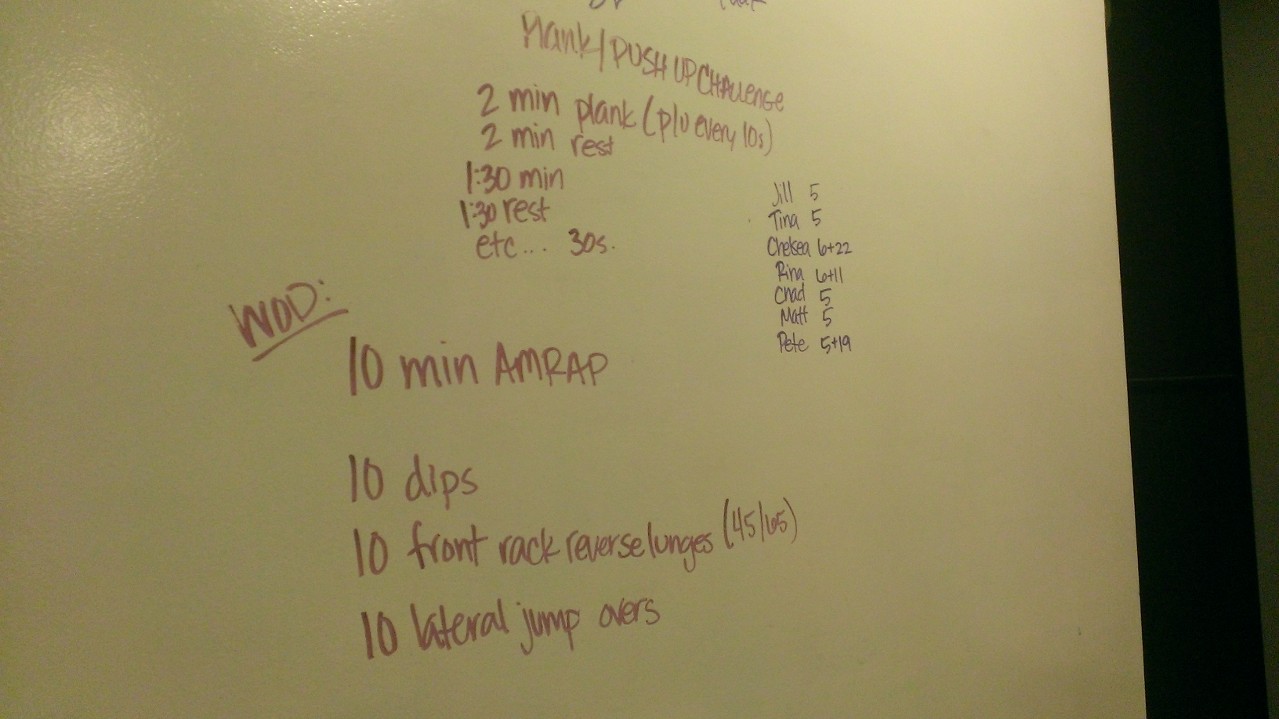 Plank/PUSH UP CHALLENGE
2 min plank (p/u every 10s)
2 min rest
1:30 min
1:30 rest
etc... 30s.
Jill 5
Tina 5
Chelsea 6+22
Rina 6+11
Chad 5
Matt 5
Pete 5+19
WOD:
10 min AMRAP
10 dips
10 front rack reverse lunges (45/65)
10 lateral jump overs